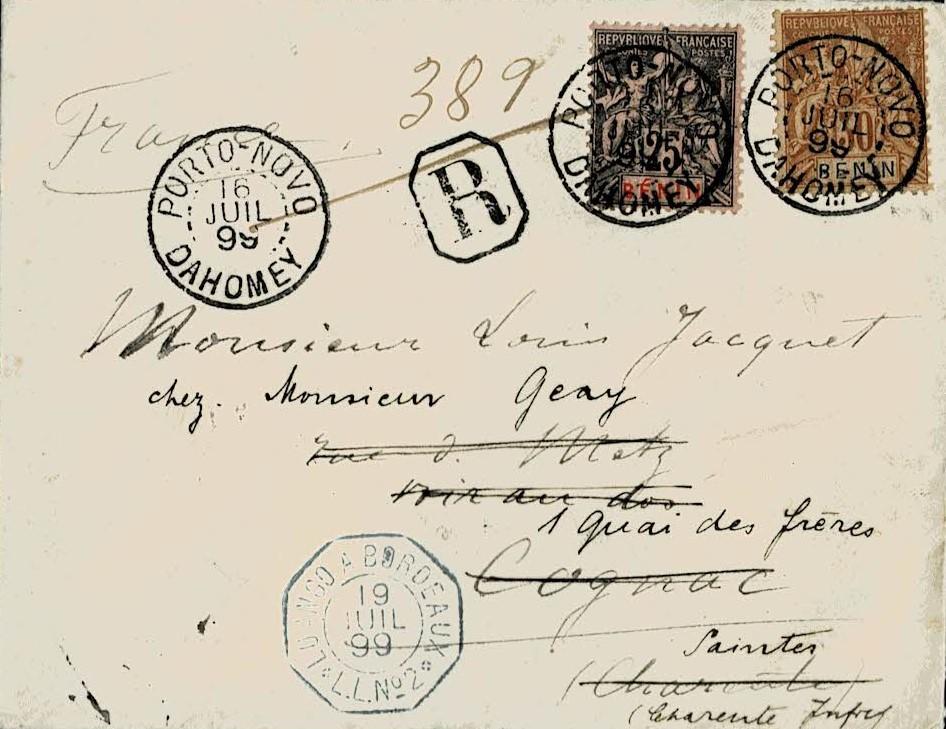 389
REPVBLIQUE FRANÇAISE
COLONIES POSTES
25
BENIN
REPVBLIQUE FRANÇAISE
POSTES
BENIN
PORTO-NOVO
DAHOMEY
PORTO-NOVO
16
JUIL
99
DAHOMEY
France
PORTO-NOVO
16
JUIL
99
DAHOMEY
R
Monsieur Louis Jacquet
chez. Monsieur Geay
rue d. Metz
voir au dos
1 Quai des frères
Cognac
LOANGO A BORDEAUX
19
JUIL
99
L.L. Nº 2
Saintes
(Charente)
(Charente Infre